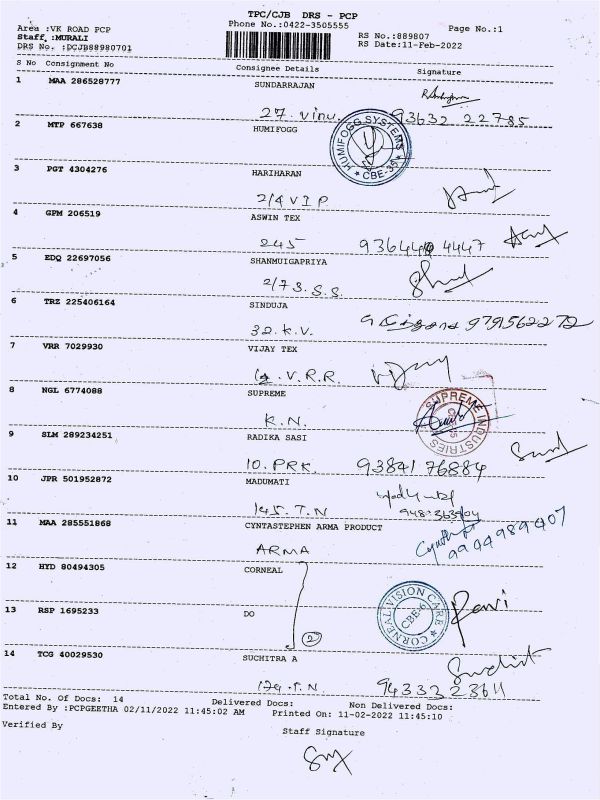 TPC/CJB DRS - PCP
Area :VK ROAD PCP Phone No.:0422-3505555 Page No.:1
Staff :MURALI RS No.:889807
DRS No. :DCJB88980701 RS Date:11-Feb-2022
S No Consignment No Consignee Details Signature
1 MAA 286528777 SUNDARRAJAN
27. Vinu. 93632 22785
2 MTP 667638 HUMIFOGG
HUMIFOGG SYSTEMS * CBE-35 *
3 PGT 4304276 HARIHARAN
2/4 V I P
4 GPM 206519 ASWIN TEX
245
5 EDQ 22697056 SHANMUIGAPRIYA
2/7 S.S.S
6 TRZ 225406164 SINDUJA
32. K.V. 9791562272
7 VRR 7029930 VIJAY TEX
V.R.R. Vijay
8 NGL 6774088 SUPREME
K.N. SUPREME INDUSTRIES
9 SLM 289234251 RADIKA SASI
10. PRK. 93841 76884
10 JPR 501952872 MADUMATI
145. T.N
11 MAA 285551868 CYNTASTEPHEN ARMA PRODUCT
ARMA 9994989407
12 HYD 80494305 CORNEAL
CORNEAL VISION CARE CBE-6
13 RSP 1695233 DO
2 Ravi
14 TCG 40029530 SUCHITRA A
T.N.
Total No. Of Docs: 14 Delivered Docs: Non Delivered Docs:
Entered By :PCPGEETHA 02/11/2022 11:45:02 AM Printed On: 11-02-2022 11:45:10
Verified By Staff Signature